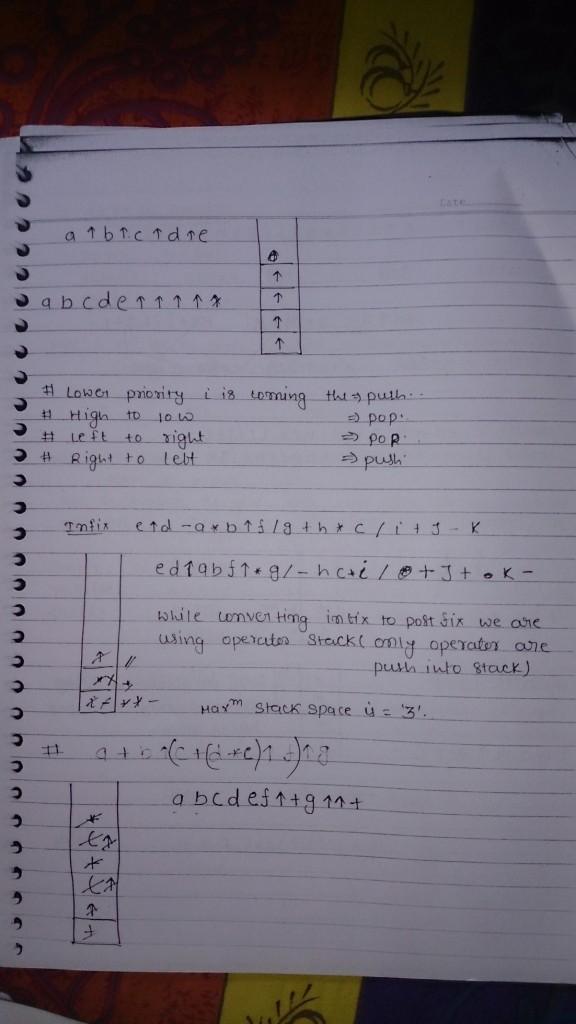 Date
a ↑ b ↑ c ↑ d ↑ e
a b c d e ↑ ↑ ↑ ↑
↑
↑
↑
↑
# Lower priority i is coming the ⇒ push..
# High to low ⇒ pop.
# Left to right ⇒ pop.
# Right to left ⇒ push
Infix e↑d - a * b ↑ f / g + h * c / i + J - K
ed↑abf↑*g/-hc*i/+J+K-
while converting infix to post fix we are
using operator stack( only operator are
push into stack)
Maxm stack space is = '3'.
# a + b ↑ (c + (d * e) ↑ f) ↑ g
a b c d e f ↑ + g ↑ ↑ +
*
( ↑
+
( ↑
↑
+